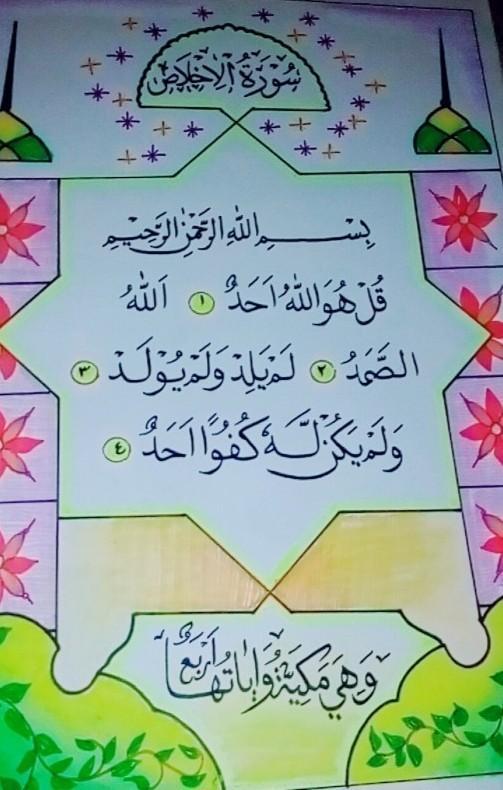 سُوْرَةُ الْاِخْلَاصِ
بِسْمِ اللّٰهِ الرَّحْمٰنِ الرَّحِيْمِ
قُلْ هُوَ اللّٰهُ اَحَدٌ ١ اَللّٰهُ
الصَّمَدُ ٢ لَمْ يَلِدْ وَلَمْ يُوْلَدْ ٣
وَلَمْ يَكُنْ لَّهٗ كُفُوًا اَحَدٌ ٤
وَهِيَ مَكِيَّةٌ وَاٰيَاتُهَا اَرْبَعٌ